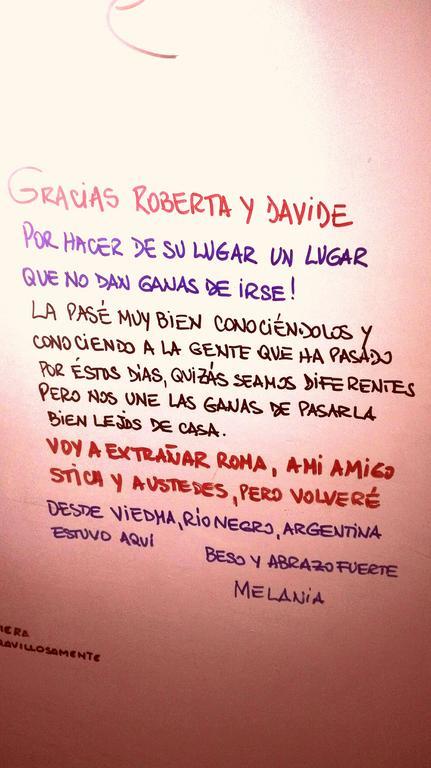 GRACIAS ROBERTA Y DAVIDE
POR HACER DE SU LUGAR UN LUGAR
QUE NO DAN GANAS DE IRSE!
LA PASÉ MUY BIEN CONOCIÉNDOLOS Y
CONOCIENDO A LA GENTE QUE HA PASADO
POR ÉSTOS DÍAS, QUIZÁS SEAMOS DIFERENTES
PERO NOS UNE LAS GANAS DE PASARLA
BIEN LEJOS DE CASA.
VOY A EXTRAÑAR ROMA, A MI AMIGO
STICA Y A USTEDES, PERO VOLVERÉ
DESDE VIEDMA, RÍO NEGRO, ARGENTINA
ESTUVO AQUÍ
BESO Y ABRAZO FUERTE
MELANIA
IERA
RAVILLOSAMENTE